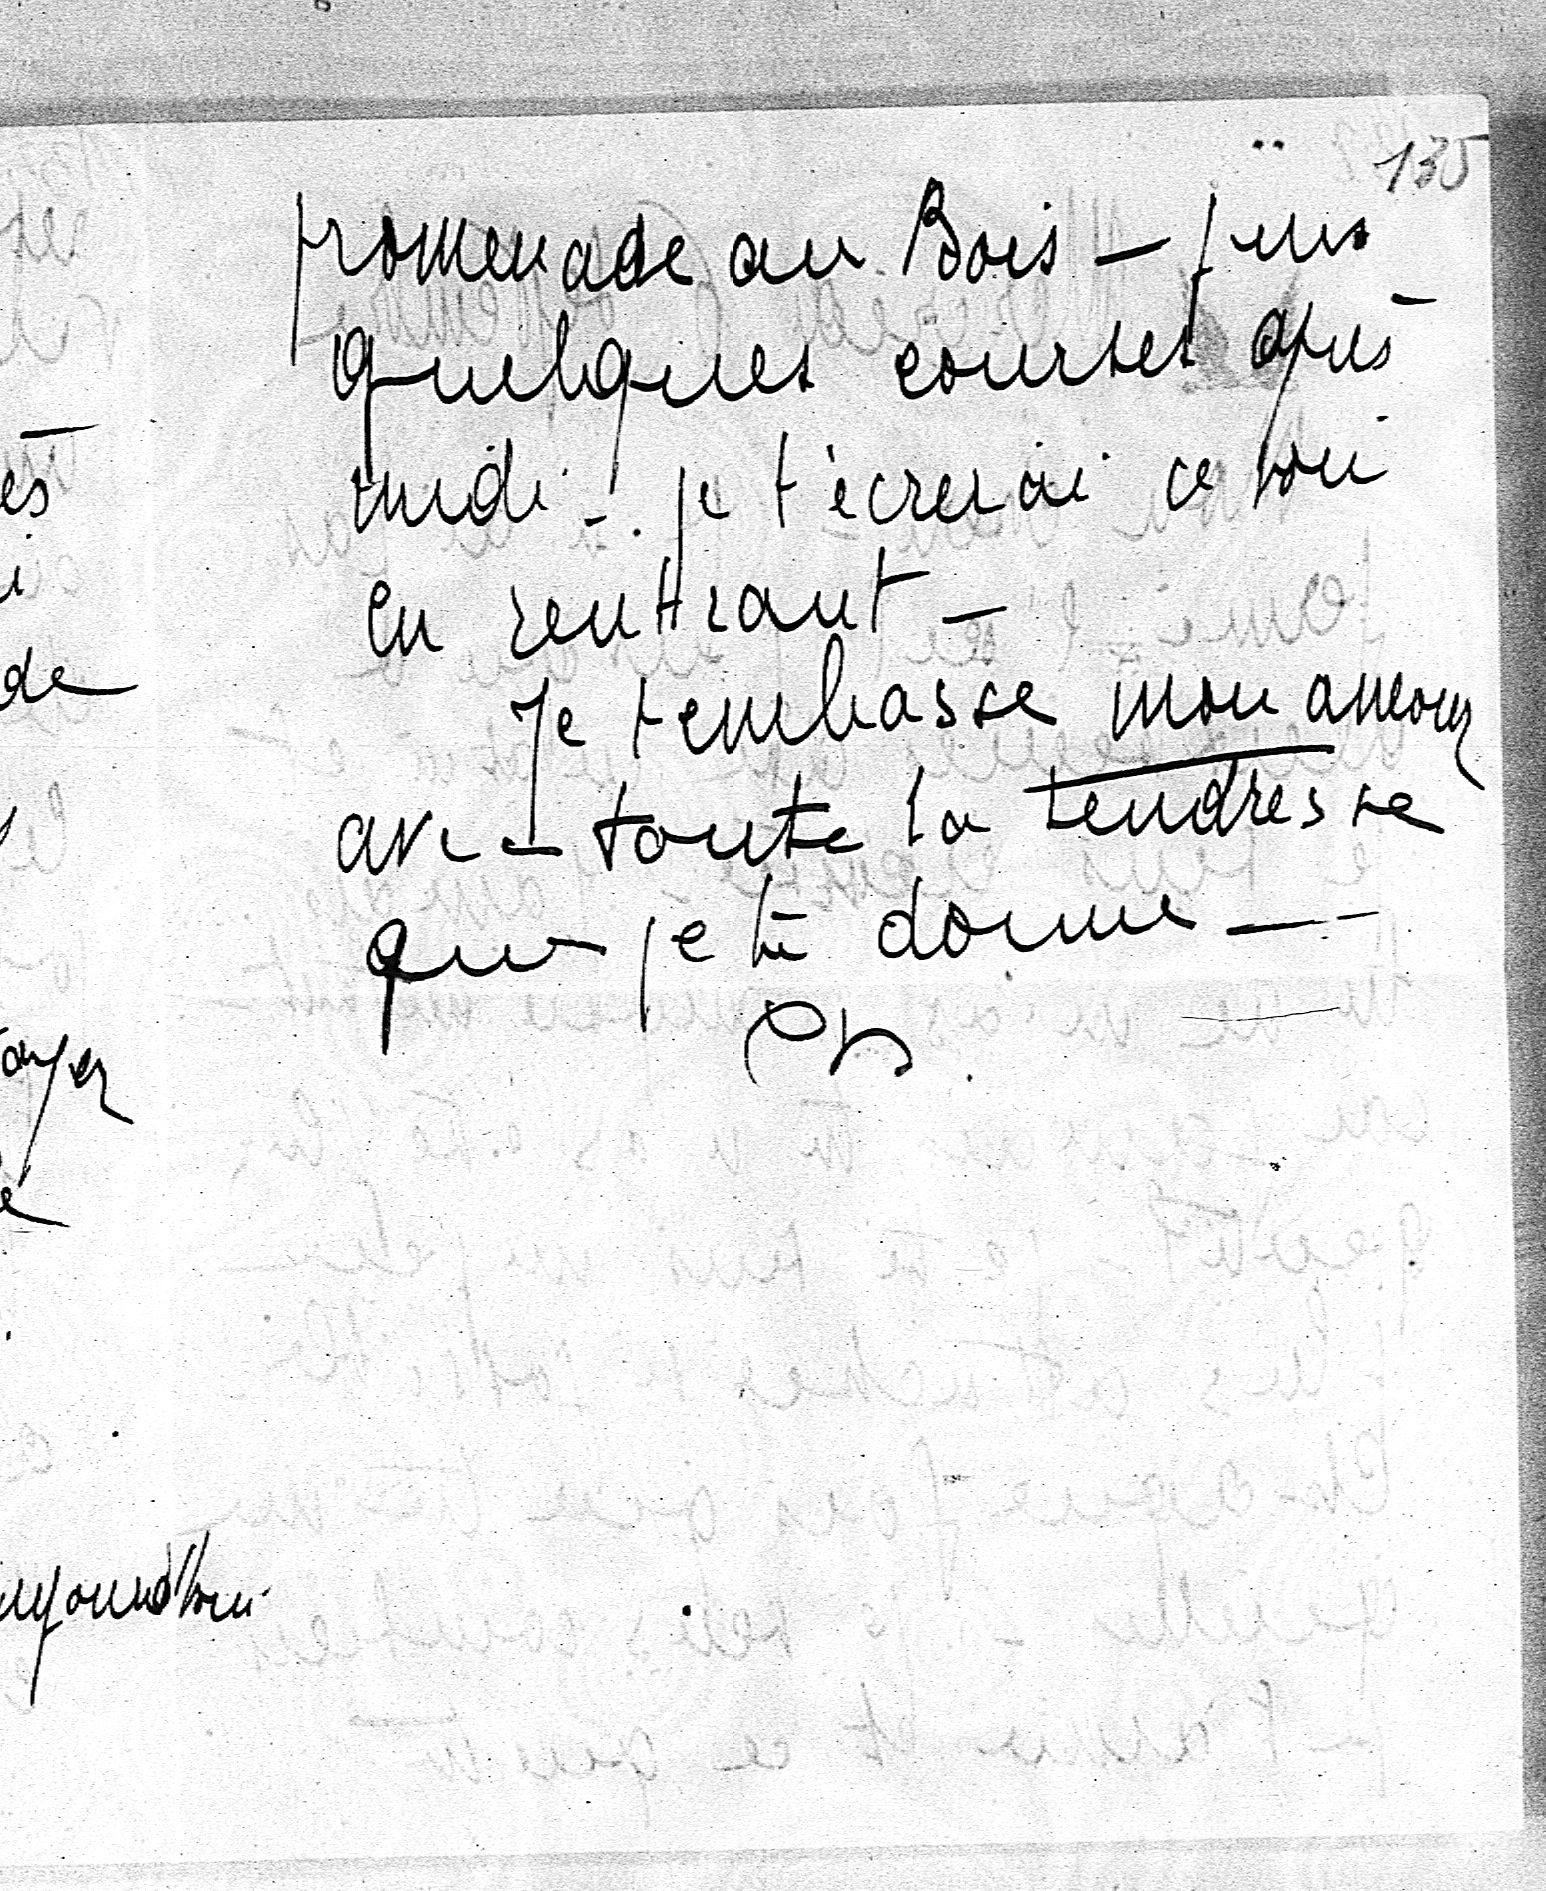 135
promenade au Bois – puis
quelques courses après
midi – . je t'écrerai ce soir
en rentrant –
Je t'embrasse mon amour
avec toute la tendresse
que je te donne —
es
i
de
ayer
aujourd'hui